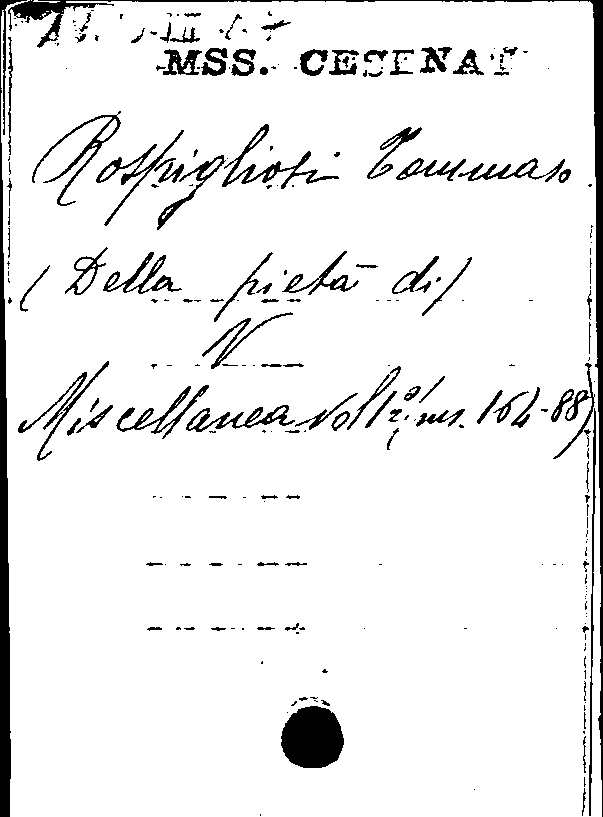 MSS. CESENAT
Rospigliosi Tommaso
(Della pietà di)
V
Miscellanea vol 12°, ms. 164-88)